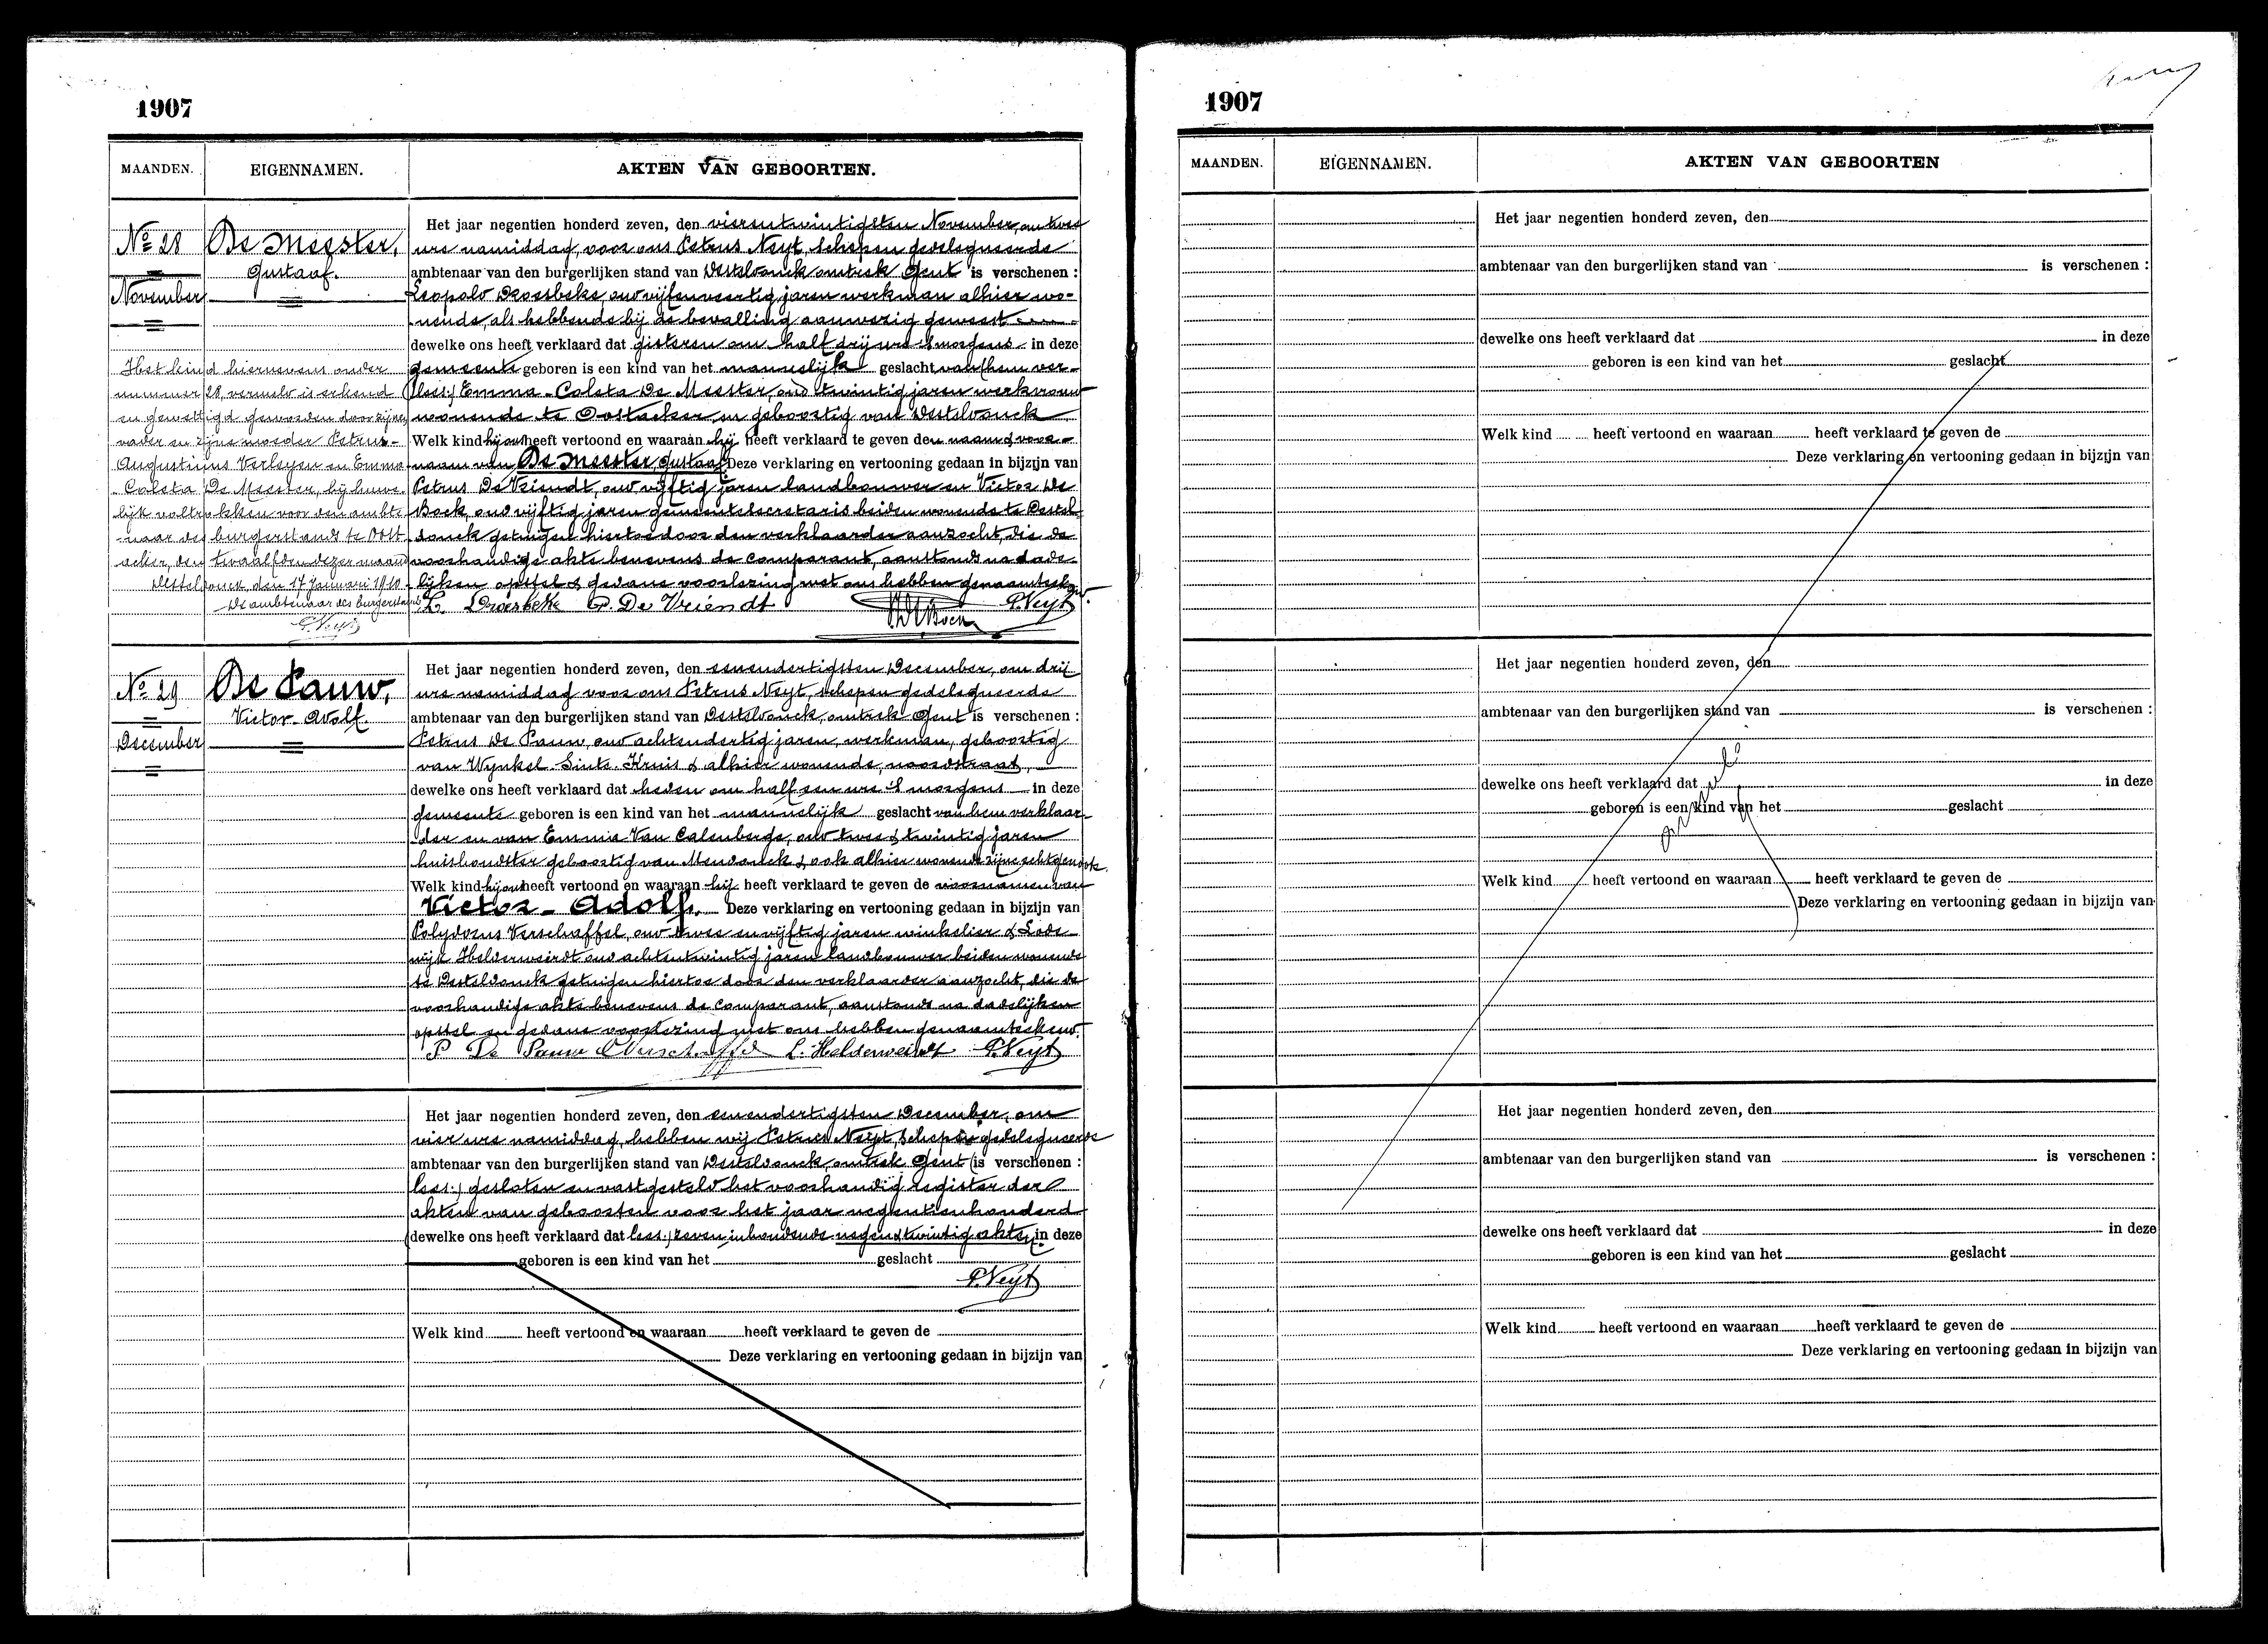 1907
MAANDEN. EIGENNAMEN. AKTEN VAN GEBOORTEN.
No 28
November
De Meester,
Gustaaf.
Het kind hiernevens onder
nummer 28, vermeld is erkend
en gewettigd geworden door zijnen
vader en zijne moeder Petrus-
Augustinus Verleyen en Emma
Coleta De Meester, bij huwe-
lijk voltrokken voor den ambte-
naar des burgerstands te Oost-
acker, den twaalfden dezer maand
Destelbonck, den 17 Januari 1910.
De ambtenaar des burgerstands
P. Neyt
Het jaar negentien honderd zeven, den vierentwintigsten November, om twee
ure namiddag, voor ons Petrus Neyt, schepen gedelegueerde
ambtenaar van den burgerlijken stand van Desteldonck, omtrek Gent is verschenen :
Leopold Droesbeke, oud vijfenveertig jaren werkman alhier wo-
nende, als hebbende bij de bevalling aanwezig geweest
dewelke ons heeft verklaard dat gisteren om half drij ure 's morgens in deze
gemeente geboren is een kind van het mannelijk geslacht van (hem ver-
(lees:) Emma-Coleta De Meester, oud twintig jaren werkvrouw
wonende te Oostacker en geboortig van Desteldonck
Welk kind hij ons heeft vertoond en waaraan hij heeft verklaard te geven den naam & voor-
naam van De Meester, Gustaaf Deze verklaring en vertooning gedaan in bijzijn van
Petrus De Vriendt, oud vijftig jaren landbouwer en Victor De
Bock, oud vijftig jaren gemeentesecretaris beiden wonende te Destel-
donck getuigen hiertoe door den verklaarder aanzocht, die de
voorhandige akte benevens de comparant, aanstonds na dade-
lijken opstel & gedane voorlezing met ons hebben genaamteekend.
L. Droesbeke P. De Vriendt P. Neyt
No 29
December
De Pauw,
Victor-Adolf.
Het jaar negentien honderd zeven, den eenendertigsten December, om drij
ure namiddag voor ons Petrus Neyt, schepen gedelegueerde
ambtenaar van den burgerlijken stand van Desteldonck, omtrek Gent is verschenen :
Petrus De Pauw, oud achtendertig jaren, werkman, geboortig
van Wynkel-Sint-Kruis & alhier wonende, noordstraat,
dewelke ons heeft verklaard dat heden om half een ure 's morgens in deze
gemeente geboren is een kind van het mannelijk geslacht van hem verklaar-
der en van Emmie Van Calenberge, oud twee & twintig jaren
huishoudster geboortig van Mendonck & ook alhier wonende zijne echtgenoote.
Welk kind hij ons heeft vertoond en waaraan hij heeft verklaard te geven de voornamen van
Victor-Adolf. Deze verklaring en vertooning gedaan in bijzijn van
Polydorus Verschaffel, oud twee en vijftig jaren winkelier & Lode-
wijk Helderweirdt oud achtentwintig jaren landbouwer beiden wonende
te Desteldonck getuigen hiertoe door den verklaarder aanzocht, die de
voorhandige akte benevens de comparant, aanstonds na dadelijken
opstel en gedane voorlezing met ons hebben genaamteekend.
P De Pauw Verschaffel L. Helderweirdt P. Neyt
Het jaar negentien honderd zeven, den eenendertigsten December, om
vier ure namiddag, hebben wij Petrus Neyt, schepen gedelegueerde
ambtenaar van den burgerlijken stand van Desteldonck, omtrek Gent (is verschenen :
lees:) gesloten en vastgesteld het voorhandig register der
akten van geboorten voor het jaar negentienhonderd
(dewelke ons heeft verklaard dat lees:) zeven, inhoudende negen & twintig akten (in deze
geboren is een kind van het geslacht
P. Neyt
Welk kind heeft vertoond en waaraan heeft verklaard te geven de
Deze verklaring en vertooning gedaan in bijzijn van
1907
MAANDEN. EIGENNAMEN. AKTEN VAN GEBOORTEN
Het jaar negentien honderd zeven, den
ambtenaar van den burgerlijken stand van is verschenen :
dewelke ons heeft verklaard dat in deze
geboren is een kind van het geslacht
Welk kind heeft vertoond en waaraan heeft verklaard te geven de
Deze verklaring en vertooning gedaan in bijzijn van
Het jaar negentien honderd zeven, den
ambtenaar van den burgerlijken stand van is verschenen :
dewelke ons heeft verklaard dat in deze
geboren is een kind van het geslacht
Welk kind heeft vertoond en waaraan heeft verklaard te geven de
Deze verklaring en vertooning gedaan in bijzijn van
Het jaar negentien honderd zeven, den
ambtenaar van den burgerlijken stand van is verschenen :
dewelke ons heeft verklaard dat in deze
geboren is een kind van het geslacht
Welk kind heeft vertoond en waaraan heeft verklaard te geven de
Deze verklaring en vertooning gedaan in bijzijn van